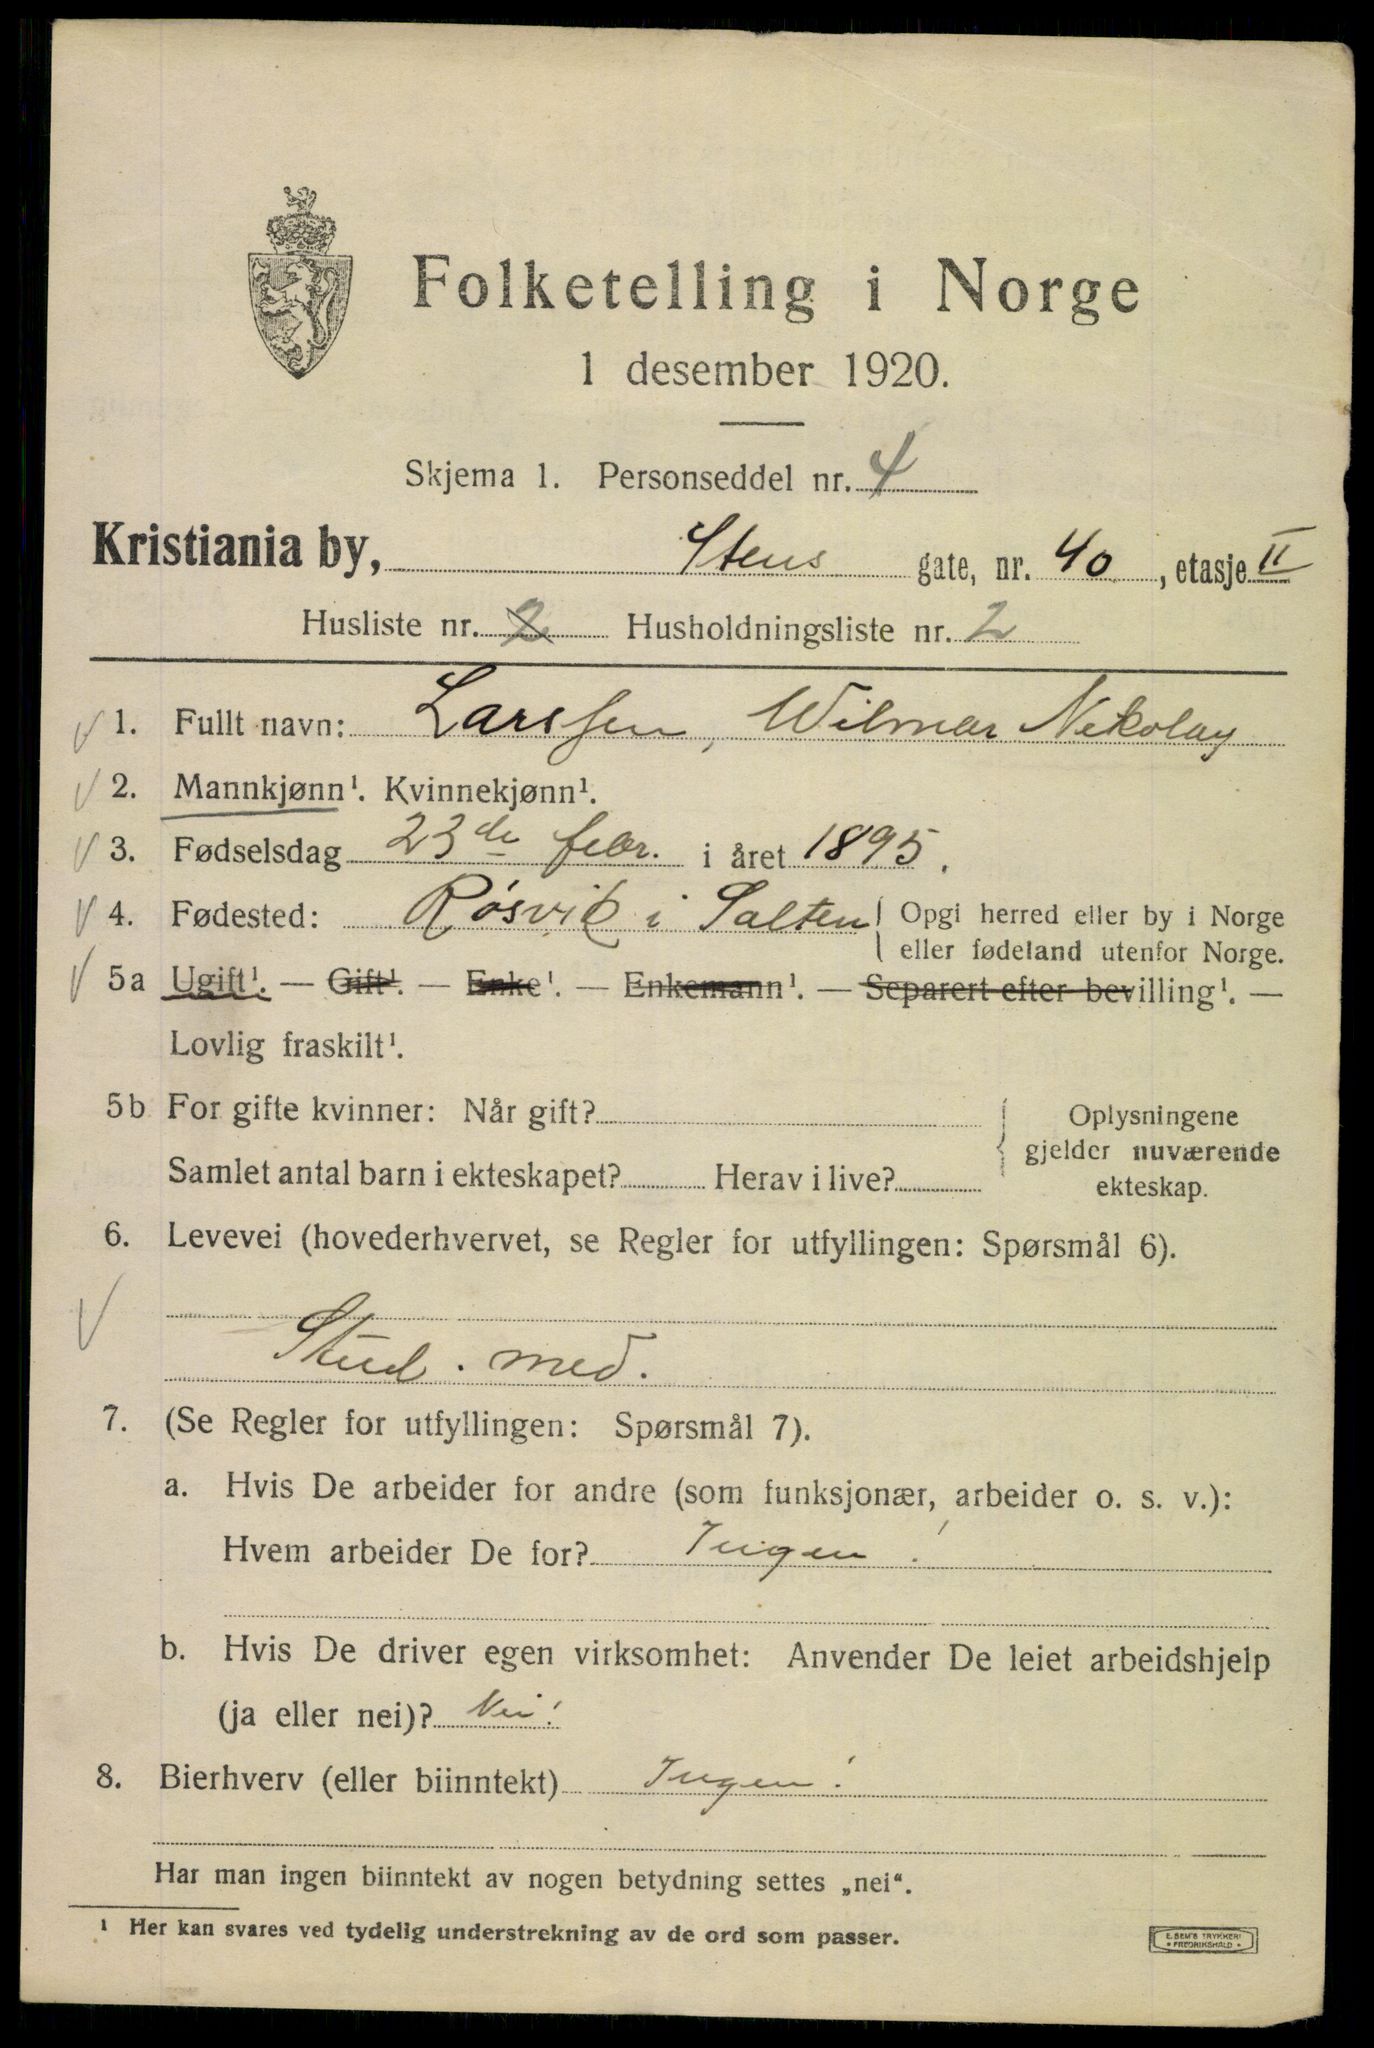 Folketelling i Norge
1 desember 1920.
Skjema 1. Personseddel nr. 4
Kristiania by, Stens gate, nr. 40, etasje II
Husliste nr. 2 Husholdningsliste nr. 2
1. Fullt navn: Larssen, Wilmar Nikolay
2. Mannkjønn¹. Kvinnekjønn¹.
3. Fødselsdag 23de febr. i året 1895.
4. Fødested: Røsvik i Salten { Opgi herred eller by i Norge
eller fødeland utenfor Norge.
5a Ugift¹. — Gift¹. — Enke¹. — Enkemann¹. — Separert efter bevilling¹. —
Lovlig fraskilt¹.
5b For gifte kvinner: Når gift?
Samlet antal barn i ekteskapet? Herav i live?
{ Oplysningene
gjelder nuværende
ekteskap.
6. Levevei (hovederhvervet, se Regler for utfyllingen: Spørsmål 6).
Stud. med.
7. (Se Regler for utfyllingen: Spørsmål 7).
a. Hvis De arbeider for andre (som funksjonær, arbeider o. s. v.):
Hvem arbeider De for? Ingen!
b. Hvis De driver egen virksomhet: Anvender De leiet arbeidshjelp
(ja eller nei)? Nei!
8. Bierhverv (eller biinntekt) Ingen!
Har man ingen biinntekt av nogen betydning settes „nei“.
¹ Her kan svares ved tydelig understrekning av de ord som passer.
E. SEM'S TRYKKERI
• FREDRIKSHALD •